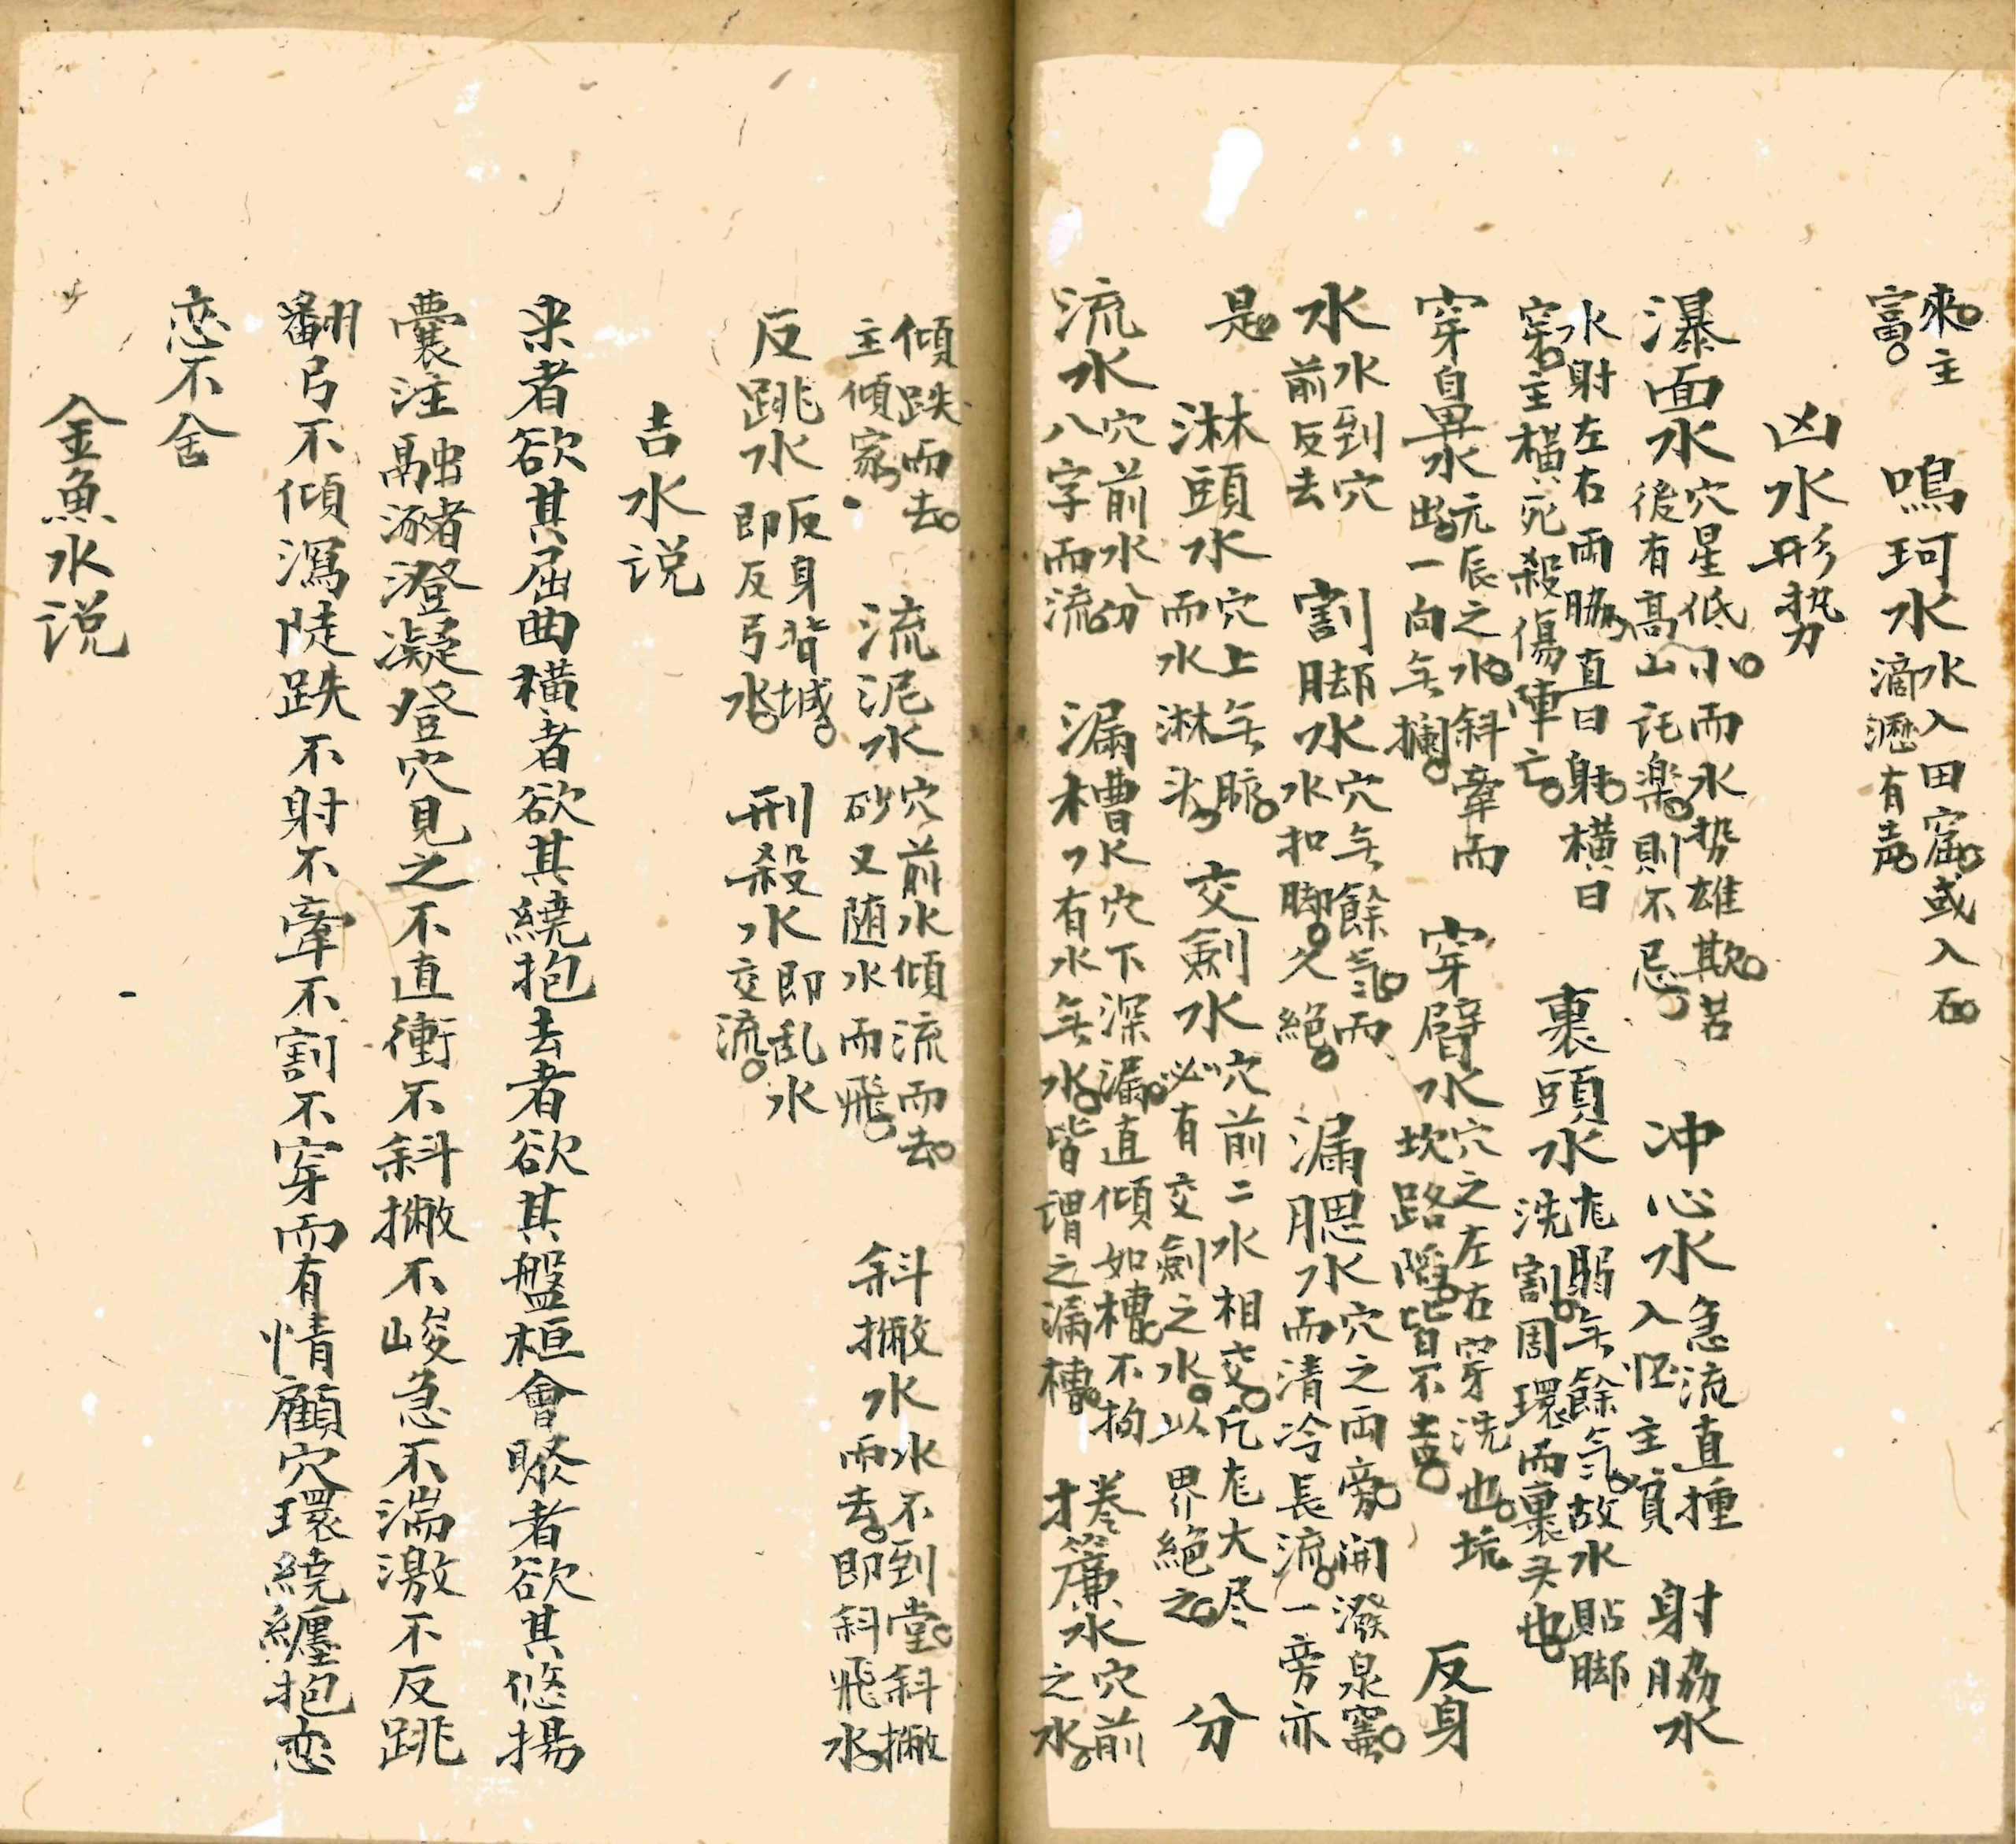 來主富 鳴珂水 水入田窟或入石滴瀝有声
凶水形势
瀑面水 穴星低小而水势雄欺若後有高山託楽則不忌 冲心水 急流直撞入怀主貧 射脇水
水射左右両脇直曰射横曰穿主横死殺傷陣亡 裹頭水 尨弱无餘氣故水貼脚洗割周環而裹头也
穿臯水 元辰之水斜牽而出一向无攔 穿臂水 穴之左右穿洗也坑坎路陷皆不吉 反身
水 水到穴前反去 割脚水 穴无餘氣而水扣脚久絕 漏腮水 穴之両旁開潑泉竇而清冷長流一旁亦
是 淋頭水 穴上无脉而水淋头 交劍水 穴前二水相交凡尨大尽必有交劍之水以界絕之 分
流水 穴前水分八字而流 漏槽水 穴下深漏直傾如槽不拘有水無水皆謂之漏槽 捲簾水 穴前之水
傾跌而去主傾家 流泥水 穴前水傾流而去砂又随水而飛 斜撇水 水不到堂斜撇而去即斜飛水
反跳水 反身背城即反弓水 刑殺水 即乱水交流
吉水説
来者欲其屈曲横者欲其繞抱去者欲其盤桓會聚者欲其悠揚
囊注融瀦澄凝登穴見之不直衝不斜撇不峻急不湍激不反跳
翻弓不傾瀉陡跌不射不牽不割不穿而有情顧穴環繞纏抱恋
恋不舍
金魚水説